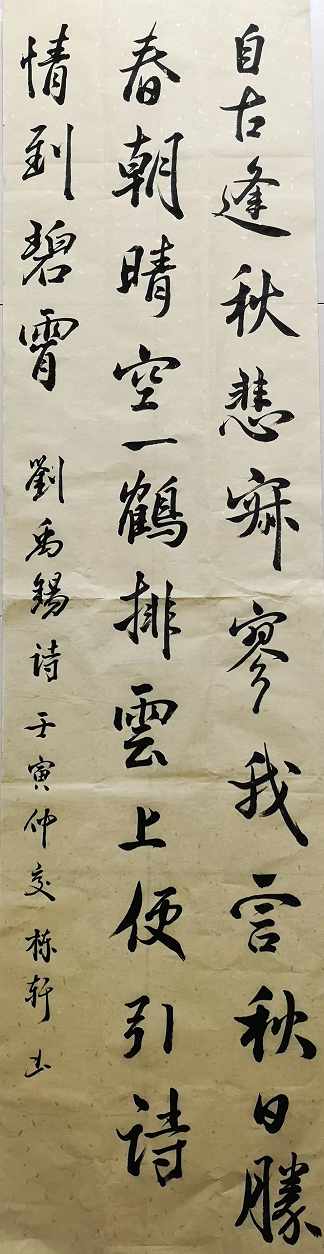 自古逢秋悲寂寥我言秋日勝
春朝晴空一鶴排雲上便引詩
情到碧霄
劉禹錫詩壬寅仲夏栋轩书